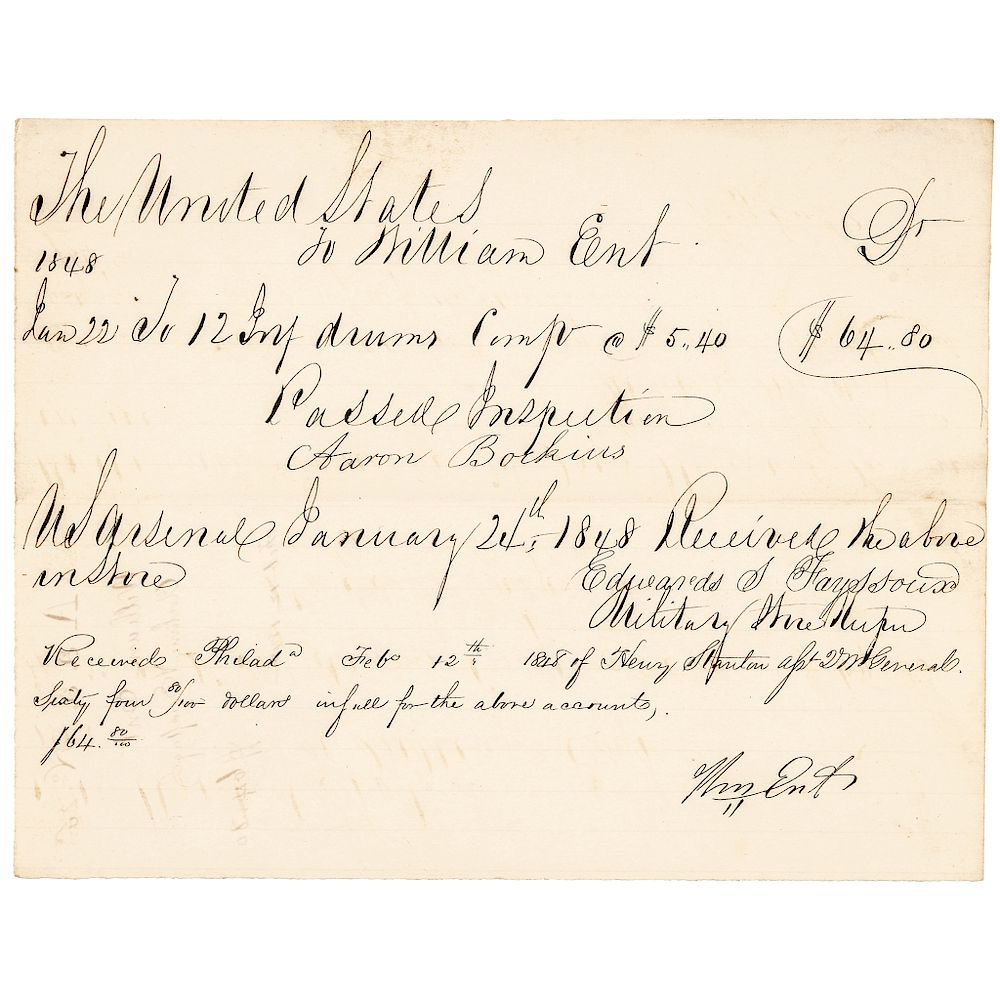 The United States Dr
1848 To William Ent
Jan 22 To 12 Inf drums Comp @ $ 5.,40 $ 64.,80
Passed Inspection
Aaron Bockius
US Arsenal January 24th, 1848 Received the above
in store Edwards S Fayssoux
Military Store Keeper
Received Philada Feb 12th 1848 of Henry Stanton asst QMGeneral.
Sixty four 80/100 dollars in full for the above accounts,
$64. 80/100
Wm Ent